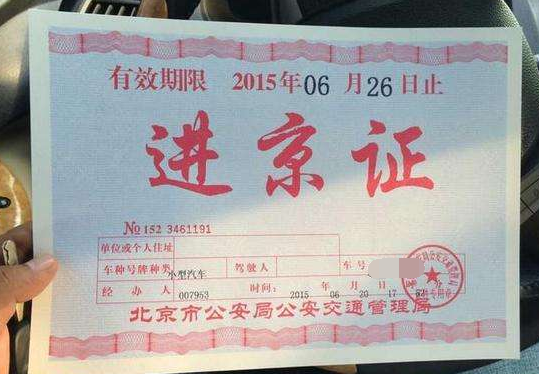 有效期限 2015年06月26日止
进京证
No 152 3461191
单位或个人住址
车种号牌种类 小型汽车 驾驶人 车号
经办人 007953 时间: 2015 06 20 17 分
北京市公安局公安交通管理局